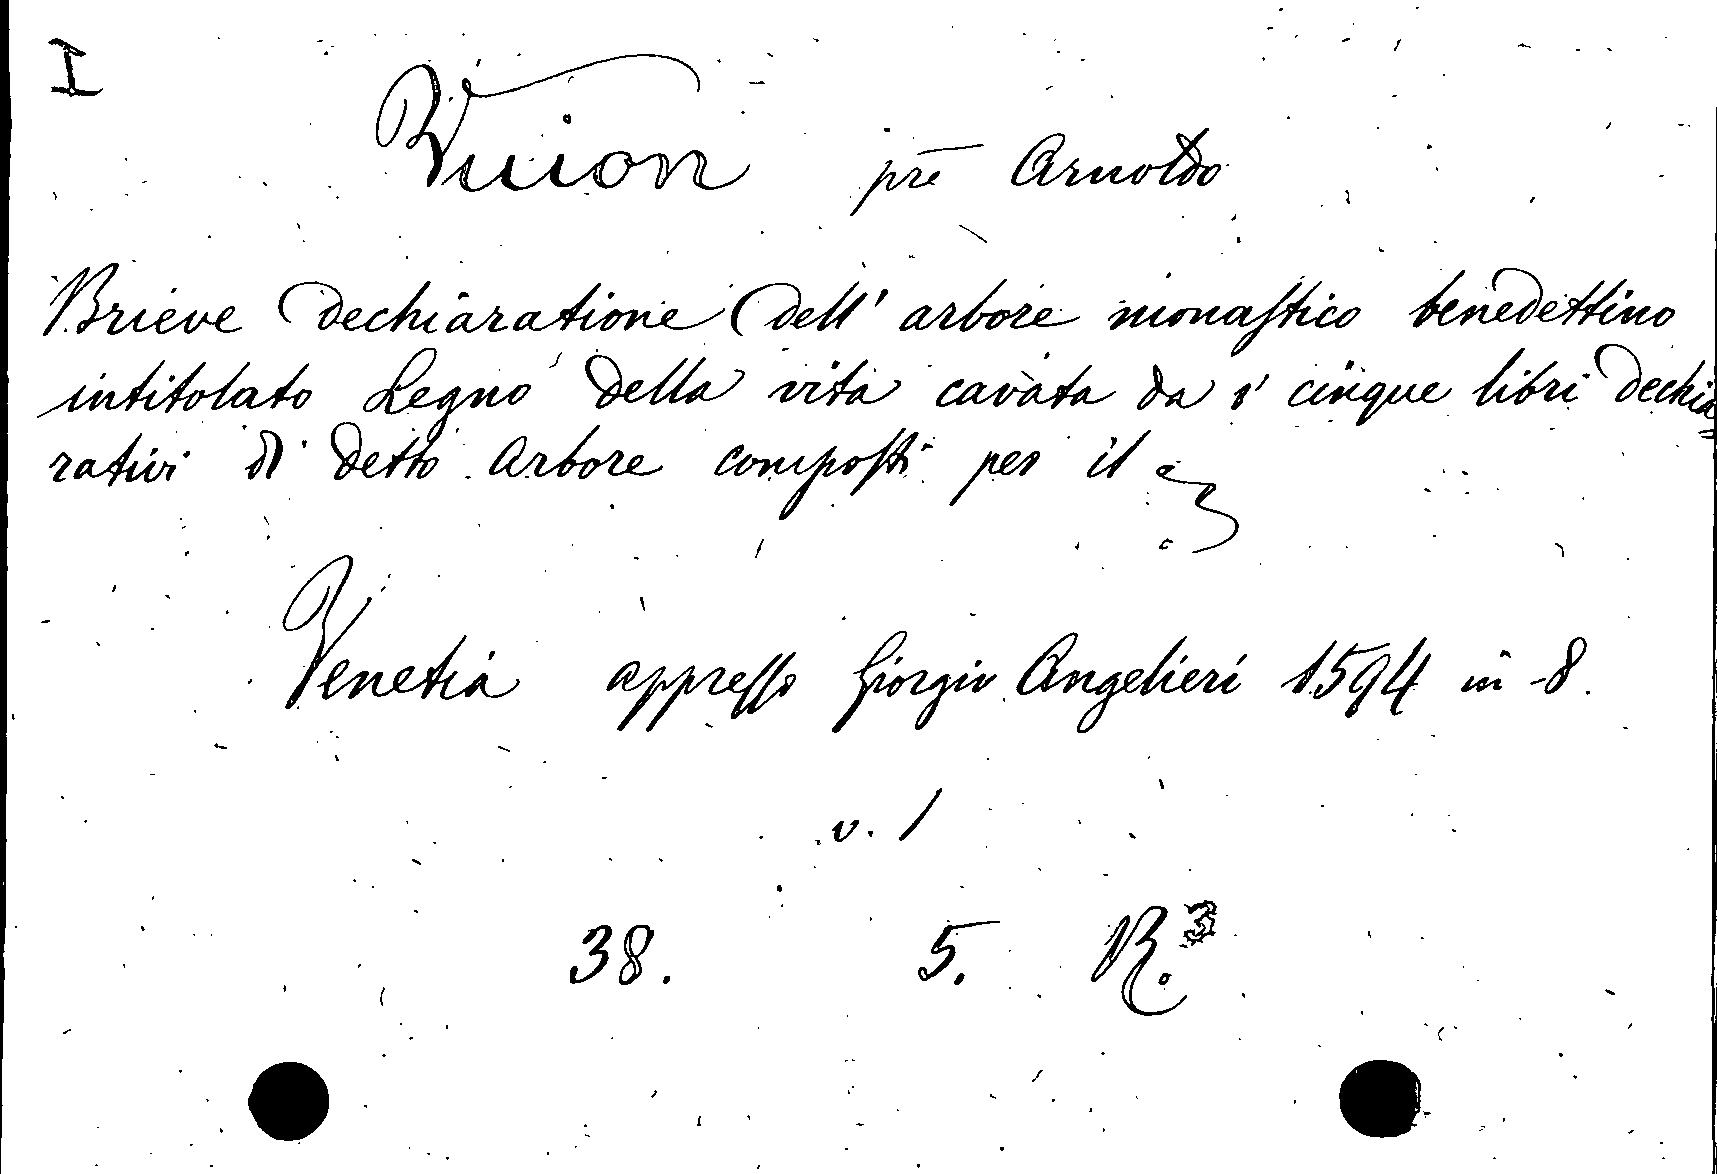 I
Vuion prē Arnoldo
Brieve dechiaratione dell' arbore monastico benedettino
intitolato Legno della vita cavata da i cinque libri dechia=
rativi di detto arbore composti per il
Venetia appresso Giorgio Angelieri 1594 in -8.
v. 1
38. 5. R.3